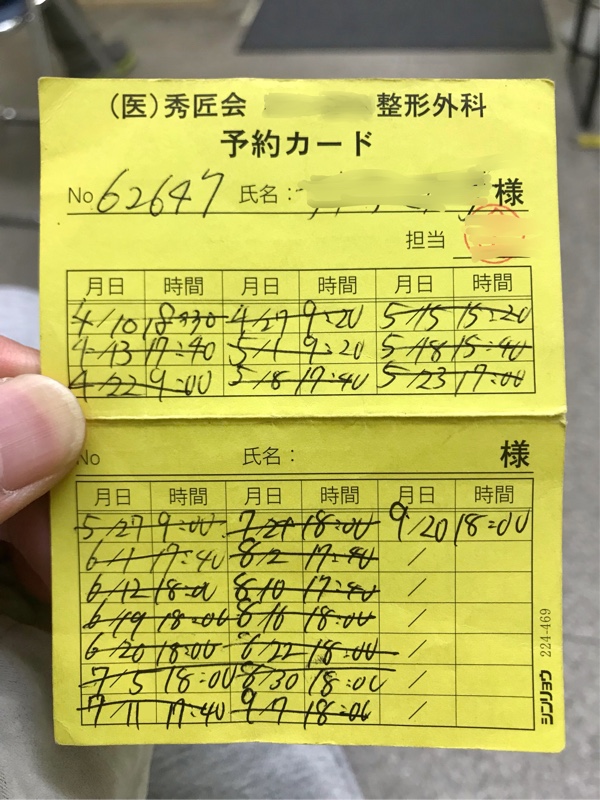 （医）秀匠会 整形外科
予約カード
No 62647 氏名： 様
担当
月日 時間 月日 時間 月日 時間
4/10 18:30 4/27 9:20 5/15 15:20
4/13 17:40 5/1 9:20 5/18 15:40
4/22 9:00 5/8 17:40 5/23 17:00
No 氏名： 様
月日 時間 月日 時間 月日 時間
5/27 9:00 7/21 18:00 9/20 18:00
6/1 17:40 8/2 17:40 /
6/12 18:00 8/10 17:40 /
6/19 18:00 8/16 18:00 /
6/20 18:00 8/22 18:00 /
7/5 18:00 8/30 18:00 /
7/11 17:40 9/7 18:00 /
224-469
シンリョウ